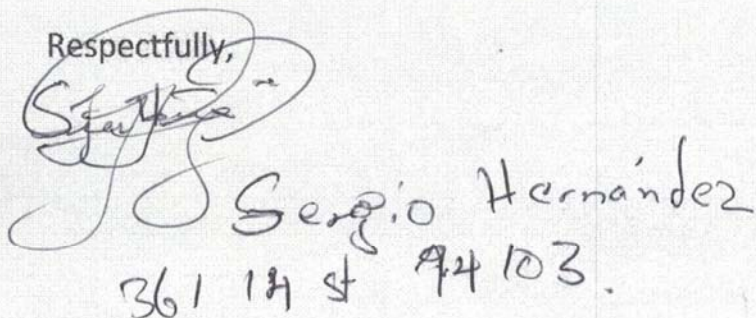 Respectfully,
Sergio Hernández
361 14 st 94103.